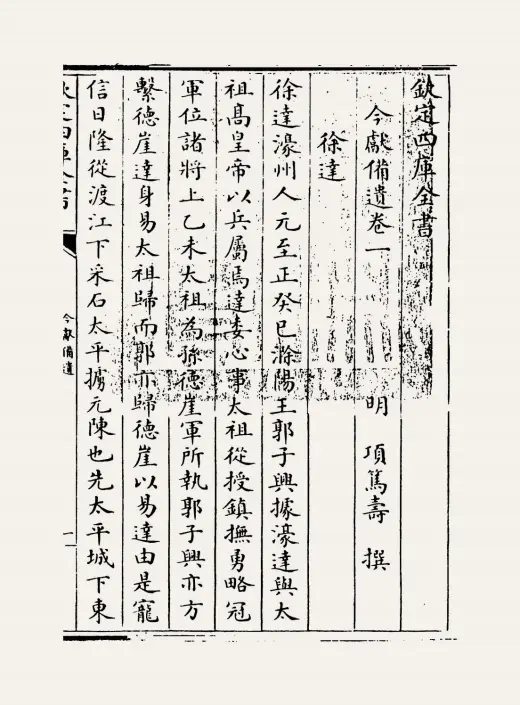 欽定四庫全書
今獻備遺卷一
明 項篤壽 撰
徐達
徐達濠州人元至正癸巳滁陽王郭子興據濠達與太
祖高皇帝以兵屬焉達委心事太祖從授鎮撫勇略冠
軍位諸將上乙未太祖為孫德崖軍所執郭子興亦方
繫德崖達身易太祖歸而郭亦歸德崖以易達由是寵
信日隆從渡江下采石太平擄元陳也先太平城下東
欽定四庫全書
今獻備遺
一